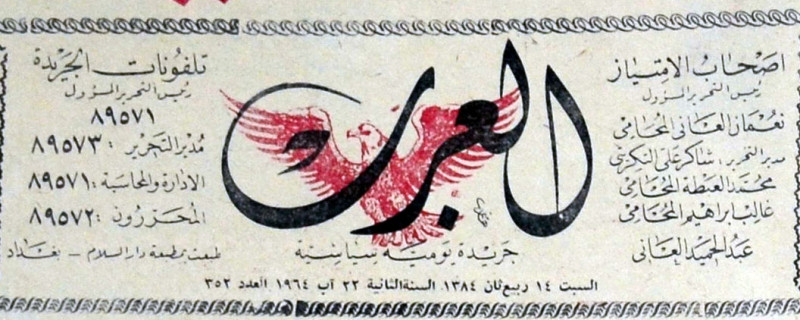 اصحاب الامتياز
رئيس التحرير المسؤول
نعمان العاني المحامي
مدير التحرير : شاكر علي التكريتي
محمد العبطة المحامي
غالب ابراهيم المحامي
عبد الحميد العاني
العرب
جريدة يومية سياسية
تلفونات الجريدة
رئيس التحرير المسؤول
٨٩٥٧١
مدير التحرير : ٨٩٥٧٣
الادارة والمحاسبة : ٨٩٥٧١
المحررون : ٨٩٥٧٢
طبعت بمطبعة دار السلام - بغداد
السبت ١٤ ربيع ثان ١٣٨٤ السنة الثانية ٢٢ آب ١٩٦٤ العدد ٣٥٢